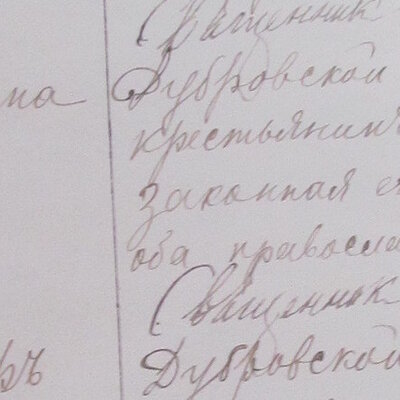 Священник
на Дубровской
крестьянинъ
законная е
оба правосла
Священник
ръ Дубровской